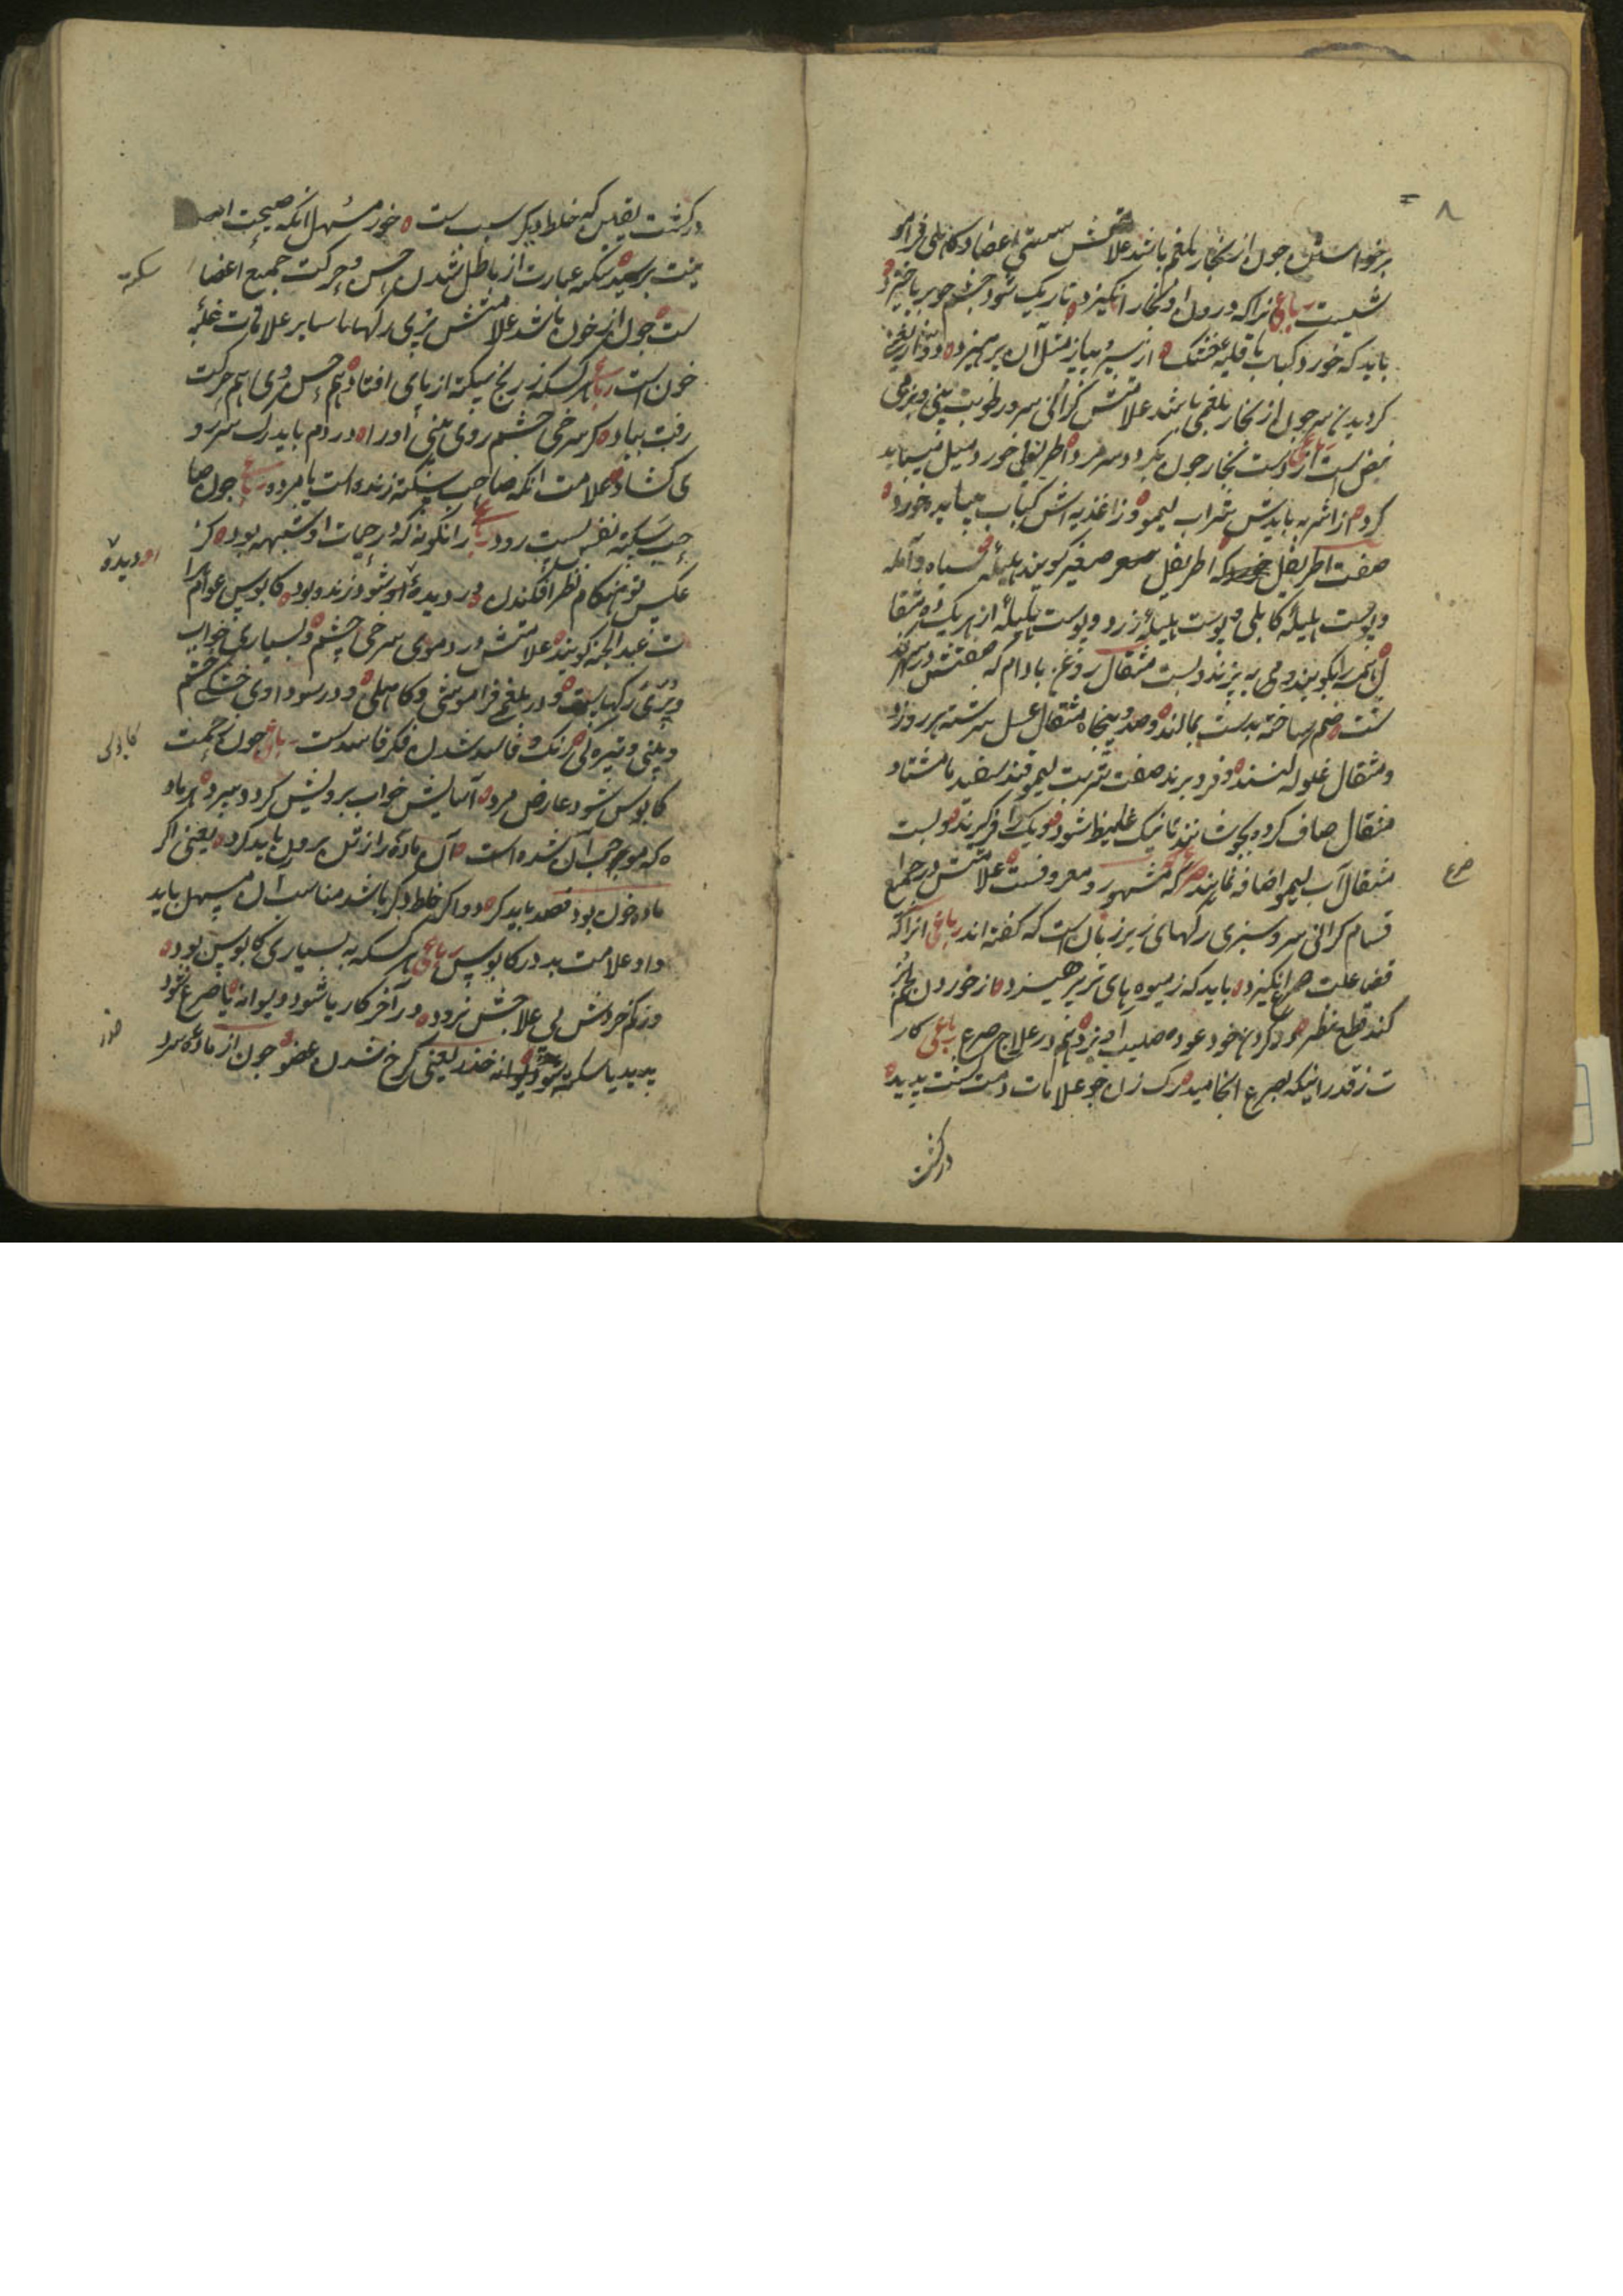 ۸
برخواستن چون از بخار بلغم باشد علامتش سستی اعضا و کاهلی و فرامو
شیست رباعی انرا که درون او بخار انگیزد تاریک شود چشم چو بر پا خیزد
باید که خورد کباب با قلیه خشک از سیر و پیاز مثل آن پرهیزد دوار یعنی
کردیدن سر چون از بخار بلغمی باشد علامتش گرانی سر و رطوبت بینی و نرمی
نبض است رباعی از دست بخار چون بگردد سر مرد اطریفل خورد و میل
کرم از اشربه بایدش شراب لیمو وز اغذیه اش کباب میباید خورد
صفت اطریفل که اطریفل صغیر گویند هلیله سیاه و آمله
و پوست هلیله کابلی و پوست هلیله زرد و پوست بلیله از هر یک ده مثقا
ل همه را بکوبند و به بیزند و بیست مثقال روغن بادام که صفتش در سهر گذ
شت ضم ساخته بدست بمالند و صد و پنجاه مثقال عسل سرشته هر روز دو
دو مثقال غلوله کنند و فرو برند صفت شربت لیمو قند سفید تا هشتاد
مثقال صاف کرده بجوشانند تا نیک غلیظ شود و کف را فرگیرند و بیست
مثقال آب لیمو اضافه نمایند صرع که مشهور و معروفست علامتش در جمیع
صرع
قسام گرانی سر و سبزی رگهای زیر زبان است که گفته اند رباعی انرا که
قضا علت صرع انگیزد باید که ز میوه های تر پرهیزد از خوردن لحم بز
کند قطع نظر در گردن خود عود صلیب آویزد هم در علاج صرع رباعی کار
ت ز قدر اینکه بصرع انجامید مرگ زان چو علامات دمت گشت پدید
درگشت
درگشت یقین که خلط دیگر سبب ست خور مسهل آنکه صحت اید
منت برسید سکته عبارت از باطل شدن حس و حرکت جمیع اعضا
سکته
ست چون از خون باشد علامتش پری رگها با سایر علامات غلبه
خون است رباعی هر کسکه ز رنج سکته از پای افتاد هم حس وی هم حرکت
رفت بباد گر سرخی چشم روی بینی او را در دم باید رگ سر رو
ی گشاد علامت انکه صاحب سکته زنده است یا مرده رباعی چون صا
حب سکته نفس بست رود رباعی زانگونه که در حیات او شبهه بود گر
او دیده
عکس تو هنگام نظر افکندن در دیده او شود زنده بود کابوس عوام آنرا
ت عبد الجنه گویند علامتش در دموی سرخی چشم و بسیاری خواب
و پری رگهاست و در بلغمی فراموشی و کاهلی و در سوداوی خشکی چشم
و بینی و تیره گی رنگ و فاسد شدن فکر فاسدست رباعی چون زحمت
کابوس شود عارض مرد آسایش خواب بر دلش گردد سرد هر ماد
ه که موجب آن شده است آن ماده را ز تن برون باید کرد یعنی اگر
ماده خون بود فصد باید کرد و اگر خلط دیگر باشد مناسب آن مسهل باید
داد علامت بد در کابوس رباعی هر کسکه به بسیاری کابوس بود
وز کم خردیش پی علاجش نرود در آخر کار یا شود دیوانه یا صرع شود
پدید یا سکته شود خدر یعنی کرخ شدن عضو چون از ماده سرد
خدر